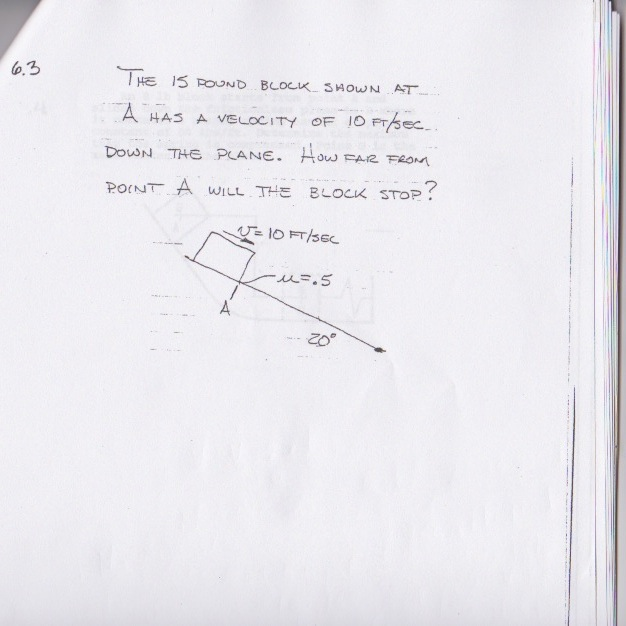 6.3
THE 15 POUND BLOCK SHOWN AT
A HAS A VELOCITY OF 10 FT/SEC
DOWN THE PLANE. HOW FAR FROM
POINT A WILL THE BLOCK STOP?
V = 10 FT/SEC
μ = .5
A
20°